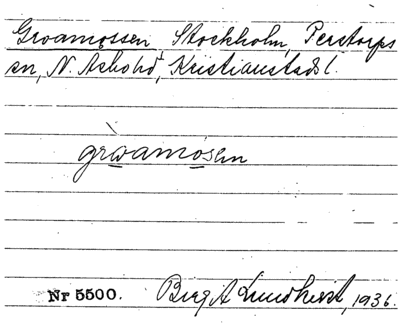 Groamossen, Stockholm, Perstorps
sn, N. Åsbo hd, Kristianstads l.
grơamosen
Nr 5500. Birgit Lundkvist, 1936.